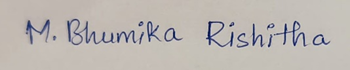 M. Bhumika Rishitha